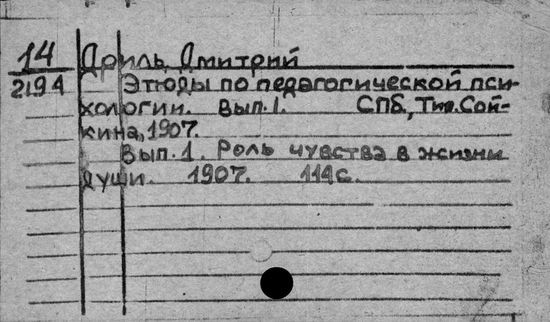 14 Дриль, Дмитрий
2194 Этюды по педагогической пси-
хологии. Вып.1. СПб., Тип. Сой-
кина, 1907.
Вып.1. Роль чувства в жизни
души. 1907. 114с.